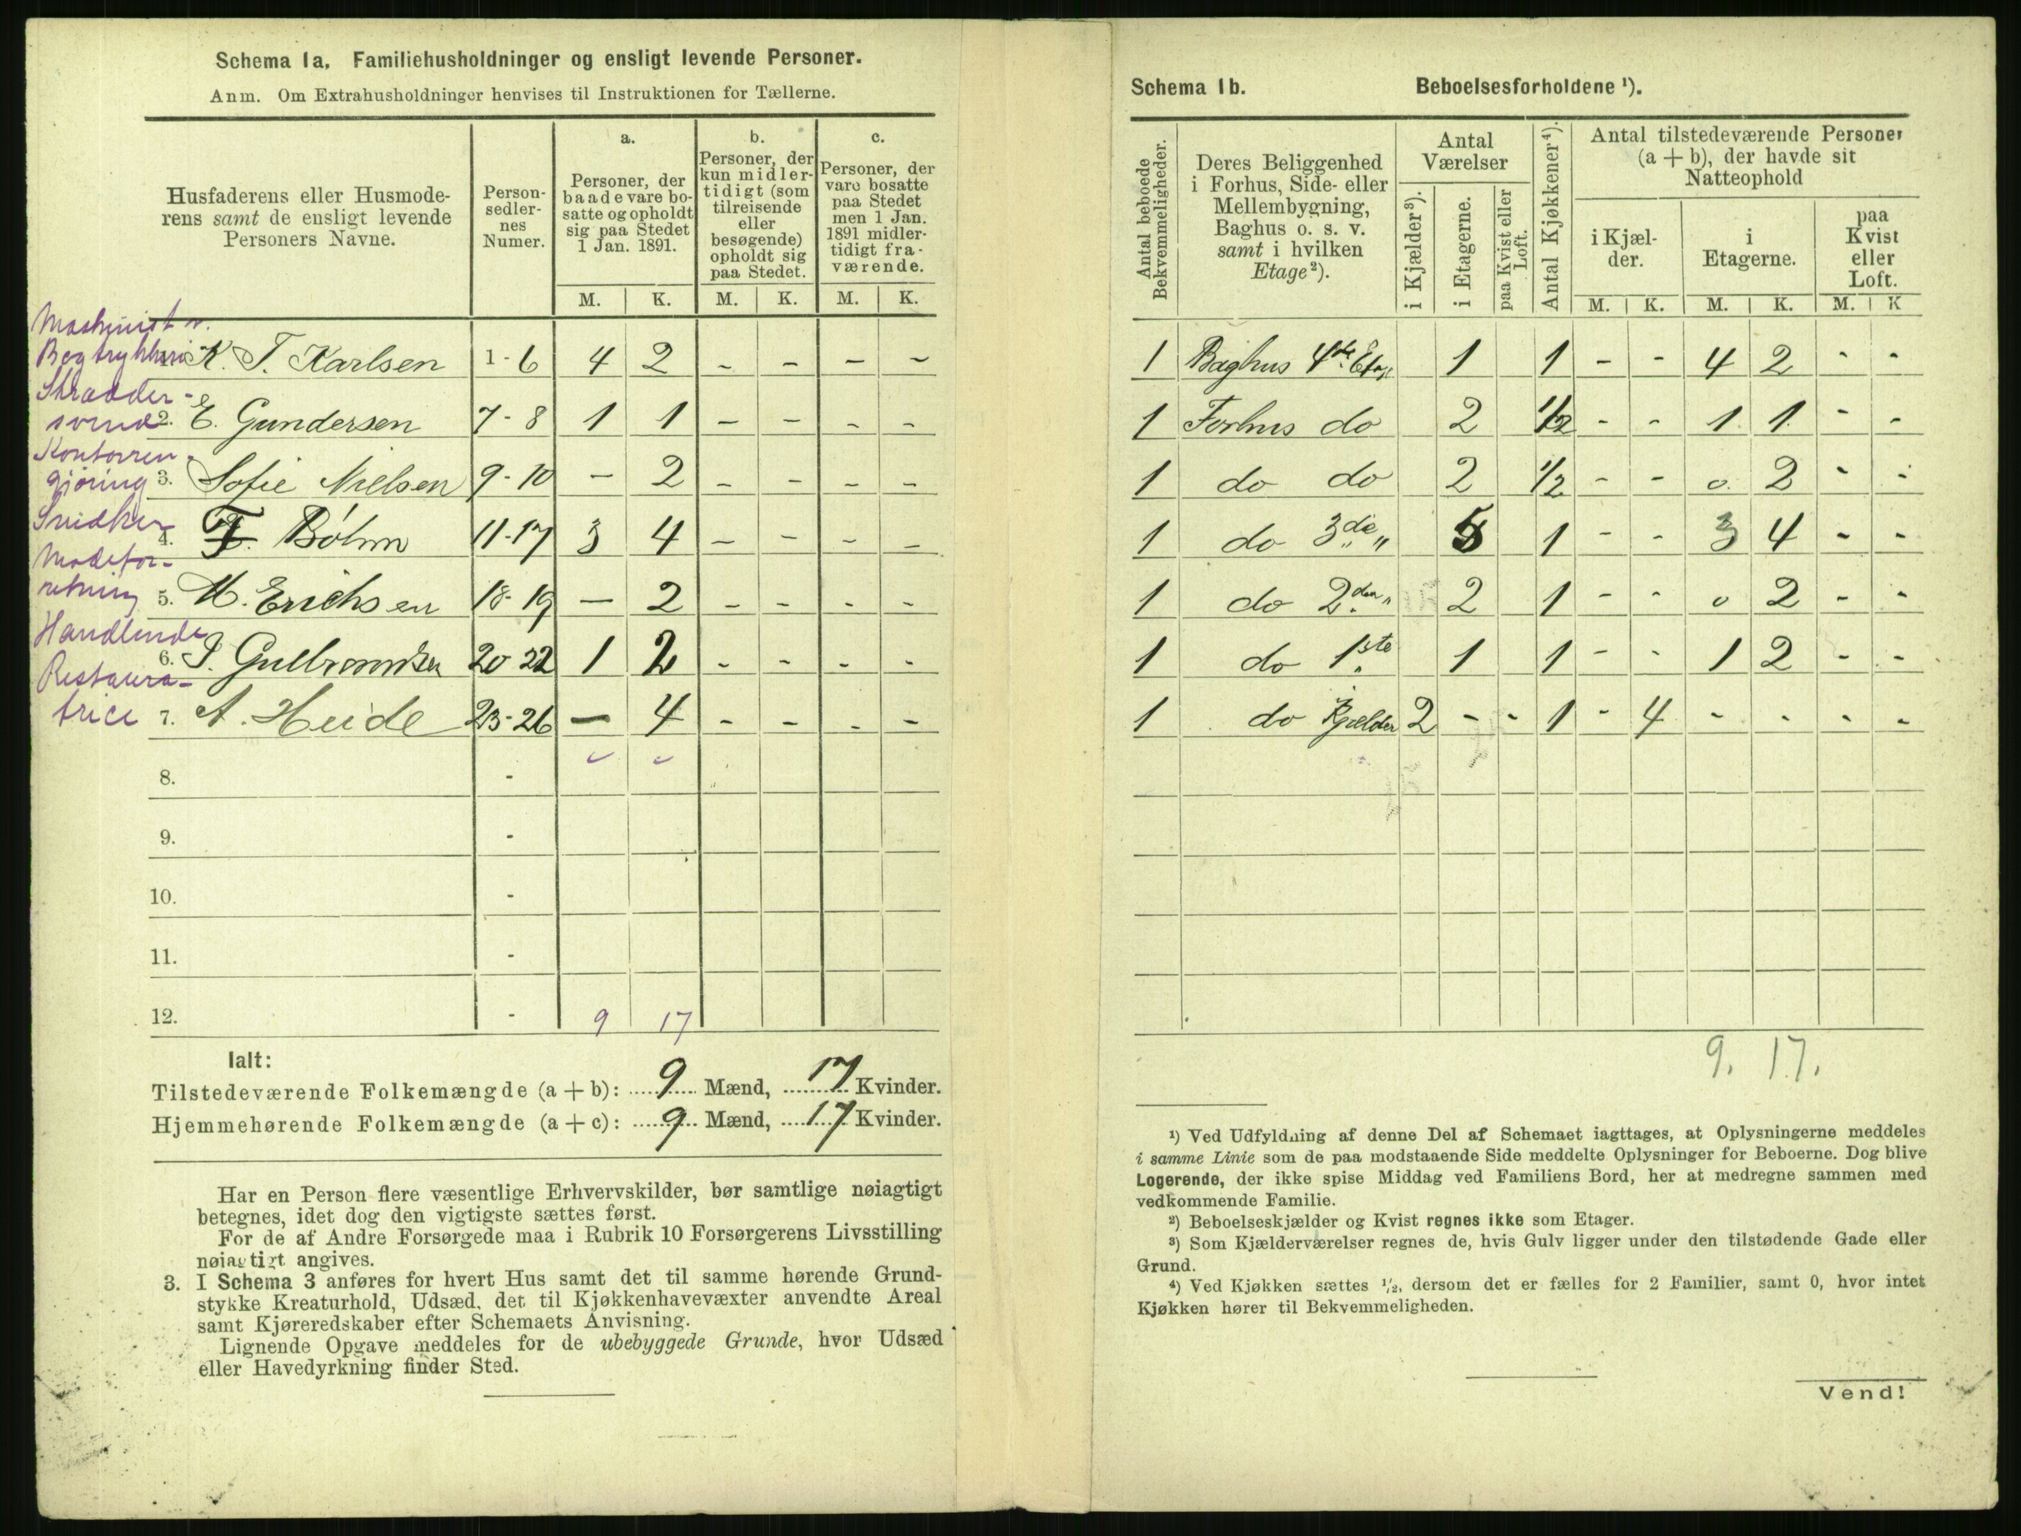 Schema 1a. Familiehusholdninger og ensligt levende Personer.
Anm. Om Extrahusholdninger henvises til Instruktionen for Tællerne.
Husfaderens eller Husmoderens samt de ensligt levende Personers Navne.
Personsedlernes Numer.
a. Personer, der baade vare bosatte og opholdt sig paa Stedet 1 Jan. 1891.
b. Personer, der kun midlertidigt (som tilreisende eller besøgende) opholdt sig paa Stedet.
c. Personer, der vare bosatte paa Stedet men 1 Jan. 1891 midlertidigt fraværende.
M. K. M. K. M. K.
Maskinist v.
Bogtrykkeri
1. K. T. Karlsen 1-6 4 2 - - - -
Skrædder-
svend
2. E. Gundersen 7-8 1 1 - - - -
Kontorren-
gjøring
3. Sofie Nielsen 9-10 - 2 - - - -
Snidker
4. F. Bøhm 11-17 3 4 - - - -
Modefor-
retning
5. M. Erichsen 18-19 - 2 - - - -
Handlende
6. Gulbrandsen 20-22 1 2 - - - -
Restaura-
trice
7. A. Heide 23-26 - 4 - - - -
8. -
9. -
10. -
11. -
12. - 9 17
Ialt:
Tilstedeværende Folkemængde (a+b): 9 Mænd, 17 Kvinder.
Hjemmehørende Folkemængde (a+c): 9 Mænd, 17 Kvinder.
Har en Person flere væsentlige Erhvervskilder, bør samtlige nøiagtigt
betegnes, idet dog den vigtigste sættes først.
For de af Andre Forsørgede maa i Rubrik 10 Forsørgerens Livsstilling
nøiagtigt angives.
3. I Schema 3 anføres for hvert Hus samt det til samme hørende Grund-
stykke Kreaturhold, Udsæd, det til Kjøkkenhavevæxter anvendte Areal
samt Kjøreredskaber efter Schemaets Anvisning.
Lignende Opgave meddeles for de ubebyggede Grunde, hvor Udsæd
eller Havedyrkning finder Sted.
Schema 1b. Beboelsesforholdene ¹).
Antal beboede Bekvemmeligheder.
Deres Beliggenhed i Forhus, Side- eller Mellembygning, Baghus o. s. v. samt i hvilken Etage²).
Antal Værelser
i Kjælder³).
i Etagerne.
paa Kvist eller Loft.
Antal Kjøkkener⁴).
Antal tilstedeværende Personer (a+b), der havde sit Natteophold
i Kjælder.
i Etagerne.
paa Kvist eller Loft.
M. K. M. K. M. K
1 Baghus 4de Etag 1 1 - - 4 2 - -
1 Forhus do 2 1/2 - - 1 1 - -
1 do do 2 1/2 - - 0 2 - -
1 do 3die " 5 1 - - 3 4 - -
1 do 2den " 2 1 - - 0 2 - -
1 do 1ste 1 1 - - 1 2 - -
1 do Kjælder 2 - - 1 - 4 - - - -
9. 17.
¹) Ved Udfyldning af denne Del af Schemaet iagttages, at Oplysningerne meddeles
i samme Linie som de paa modstaaende Side meddelte Oplysninger for Beboerne. Dog blive
Logerende, der ikke spise Middag ved Familiens Bord, her at medregne sammen med
vedkommende Familie.
²) Beboelseskjælder og Kvist regnes ikke som Etager.
³) Som Kjælderværelser regnes de, hvis Gulv ligger under den tilstødende Gade eller
Grund.
⁴) Ved Kjøkken sættes 1/2, dersom det er fælles for 2 Familier, samt 0, hvor intet
Kjøkken hører til Bekvemmeligheden.
Vend!